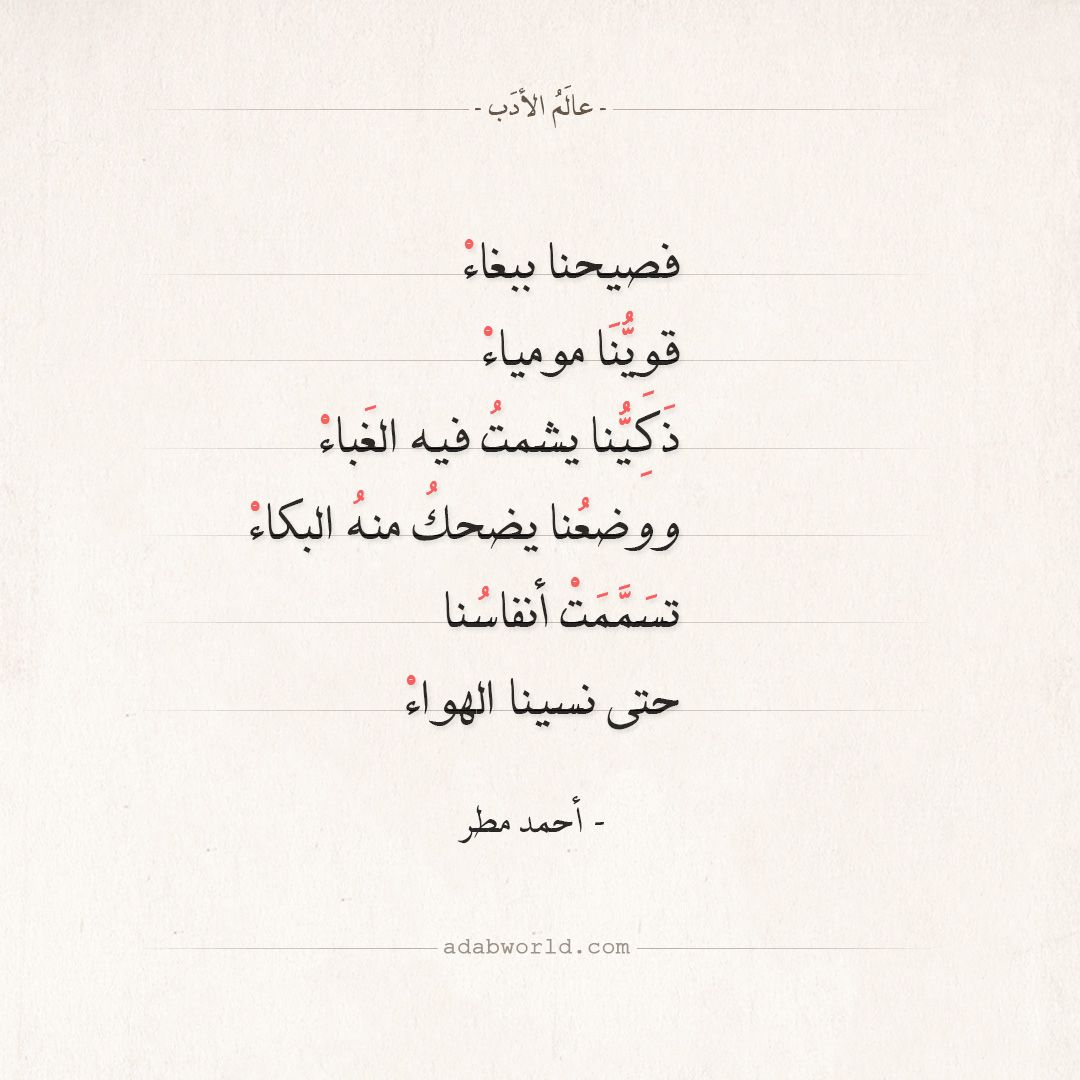 - عالَمُ الأدَب -
فصيحنا ببغاءْ
قويُّنَا مومياءْ
ذَكَِيُّنا يشمتُ فيه الغَباءْ
ووضعُنا يضحكُ منهُ البكاءْ
تسَمَّمَتْ أنفاسُنا
حتى نسينا الهواءْ
- أحمد مطر
adabworld.com